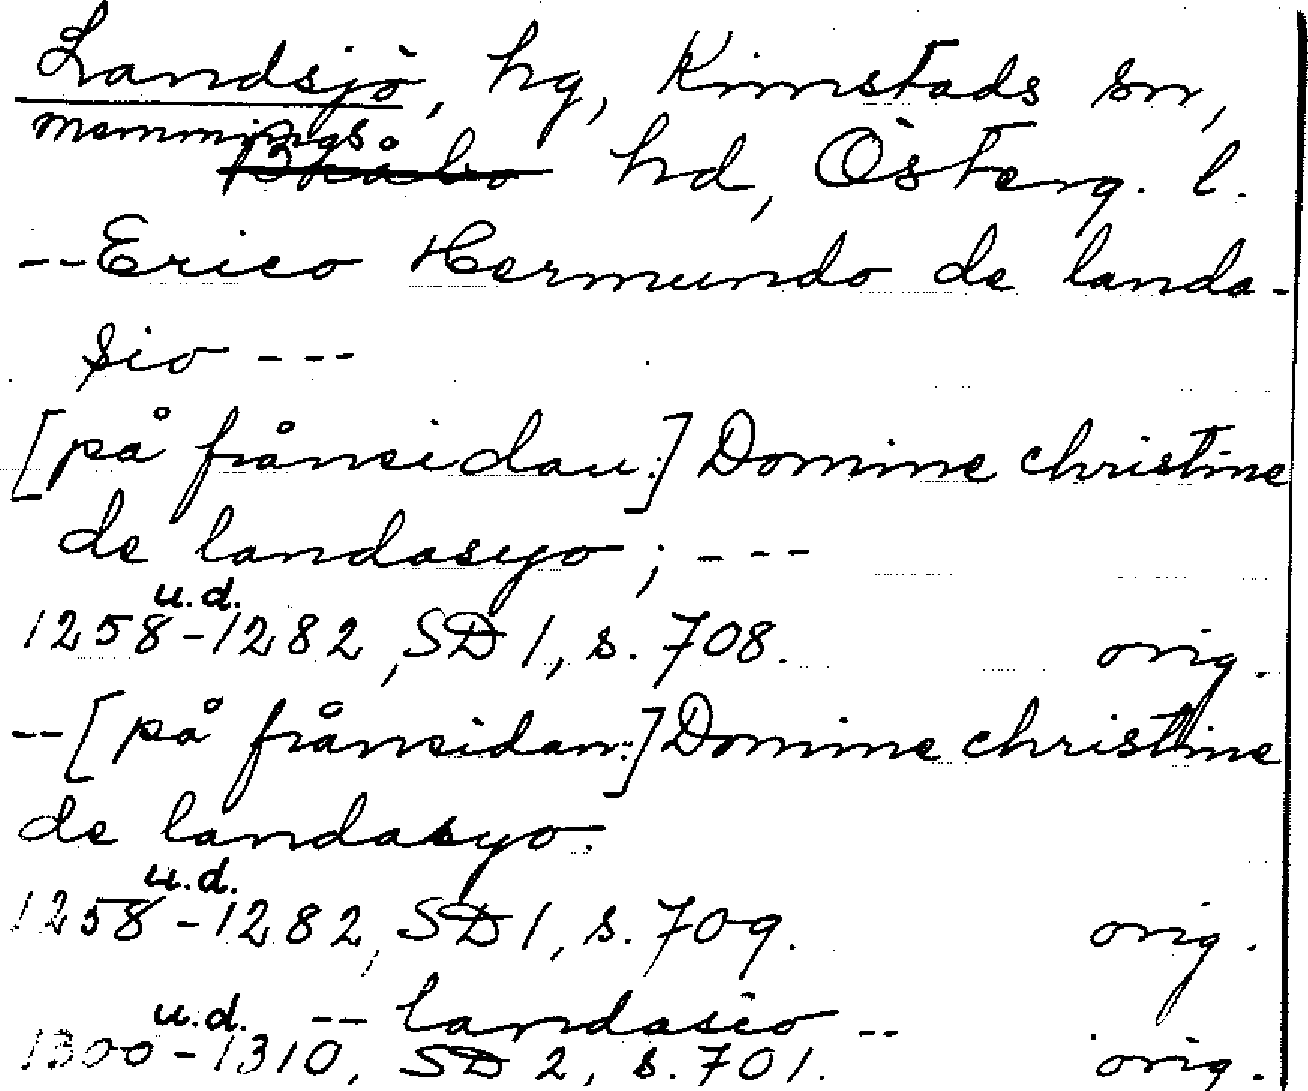 Landsjö, hg, Kimstads sn,
Memmings
Bråbo hd, Österg. l.
--Erico Hermundo de landa-
sio ---
[på frånsidan:] Domine christine
de landasyo ; ---
u.d.
1258-1282, SD 1, s. 708. orig.
--[på frånsidan:] Domine christine
de landasyo.
u.d.
1258-1282, SD 1, s. 709. orig.
u.d. -- landasio --
1300-1310, SD 2, s. 701. orig.